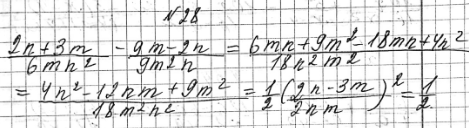 №28
(2n+3m)/(6mn²) - (9m-2n)/(9m²n) = (6mn+9m²-18mn+4n²)/(18n²m²)
= (4n²-12nm+9m²)/(18m²n²) = 1/2 ((2n-3m)/(2nm))² = 1/2